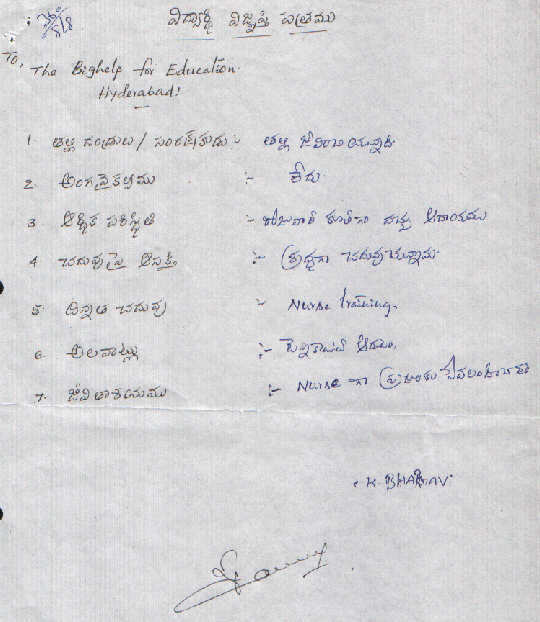 విద్యార్థి విజ్ఞప్తి పత్రము
To,
The Bighelp for Education.
Hyderabad!
1 తల్లి దండ్రులు / సంరక్షకుడు :- తల్లి జీవించియున్నది
2 అంగవైకల్యము :- లేదు
3 ఆర్థిక పరిస్థితి :- రోజువారీ కూలీగా ఆదాయము
4 చదువుపై ఆసక్తి :- శ్రద్ధగా చదువుచున్నాను
5 ఉన్నత చదువు :- Nurse training.
6. అలవాట్లు :-
7. జీవితాశయము :- Nurse గా ప్రజలకు
K. BHARGAV.